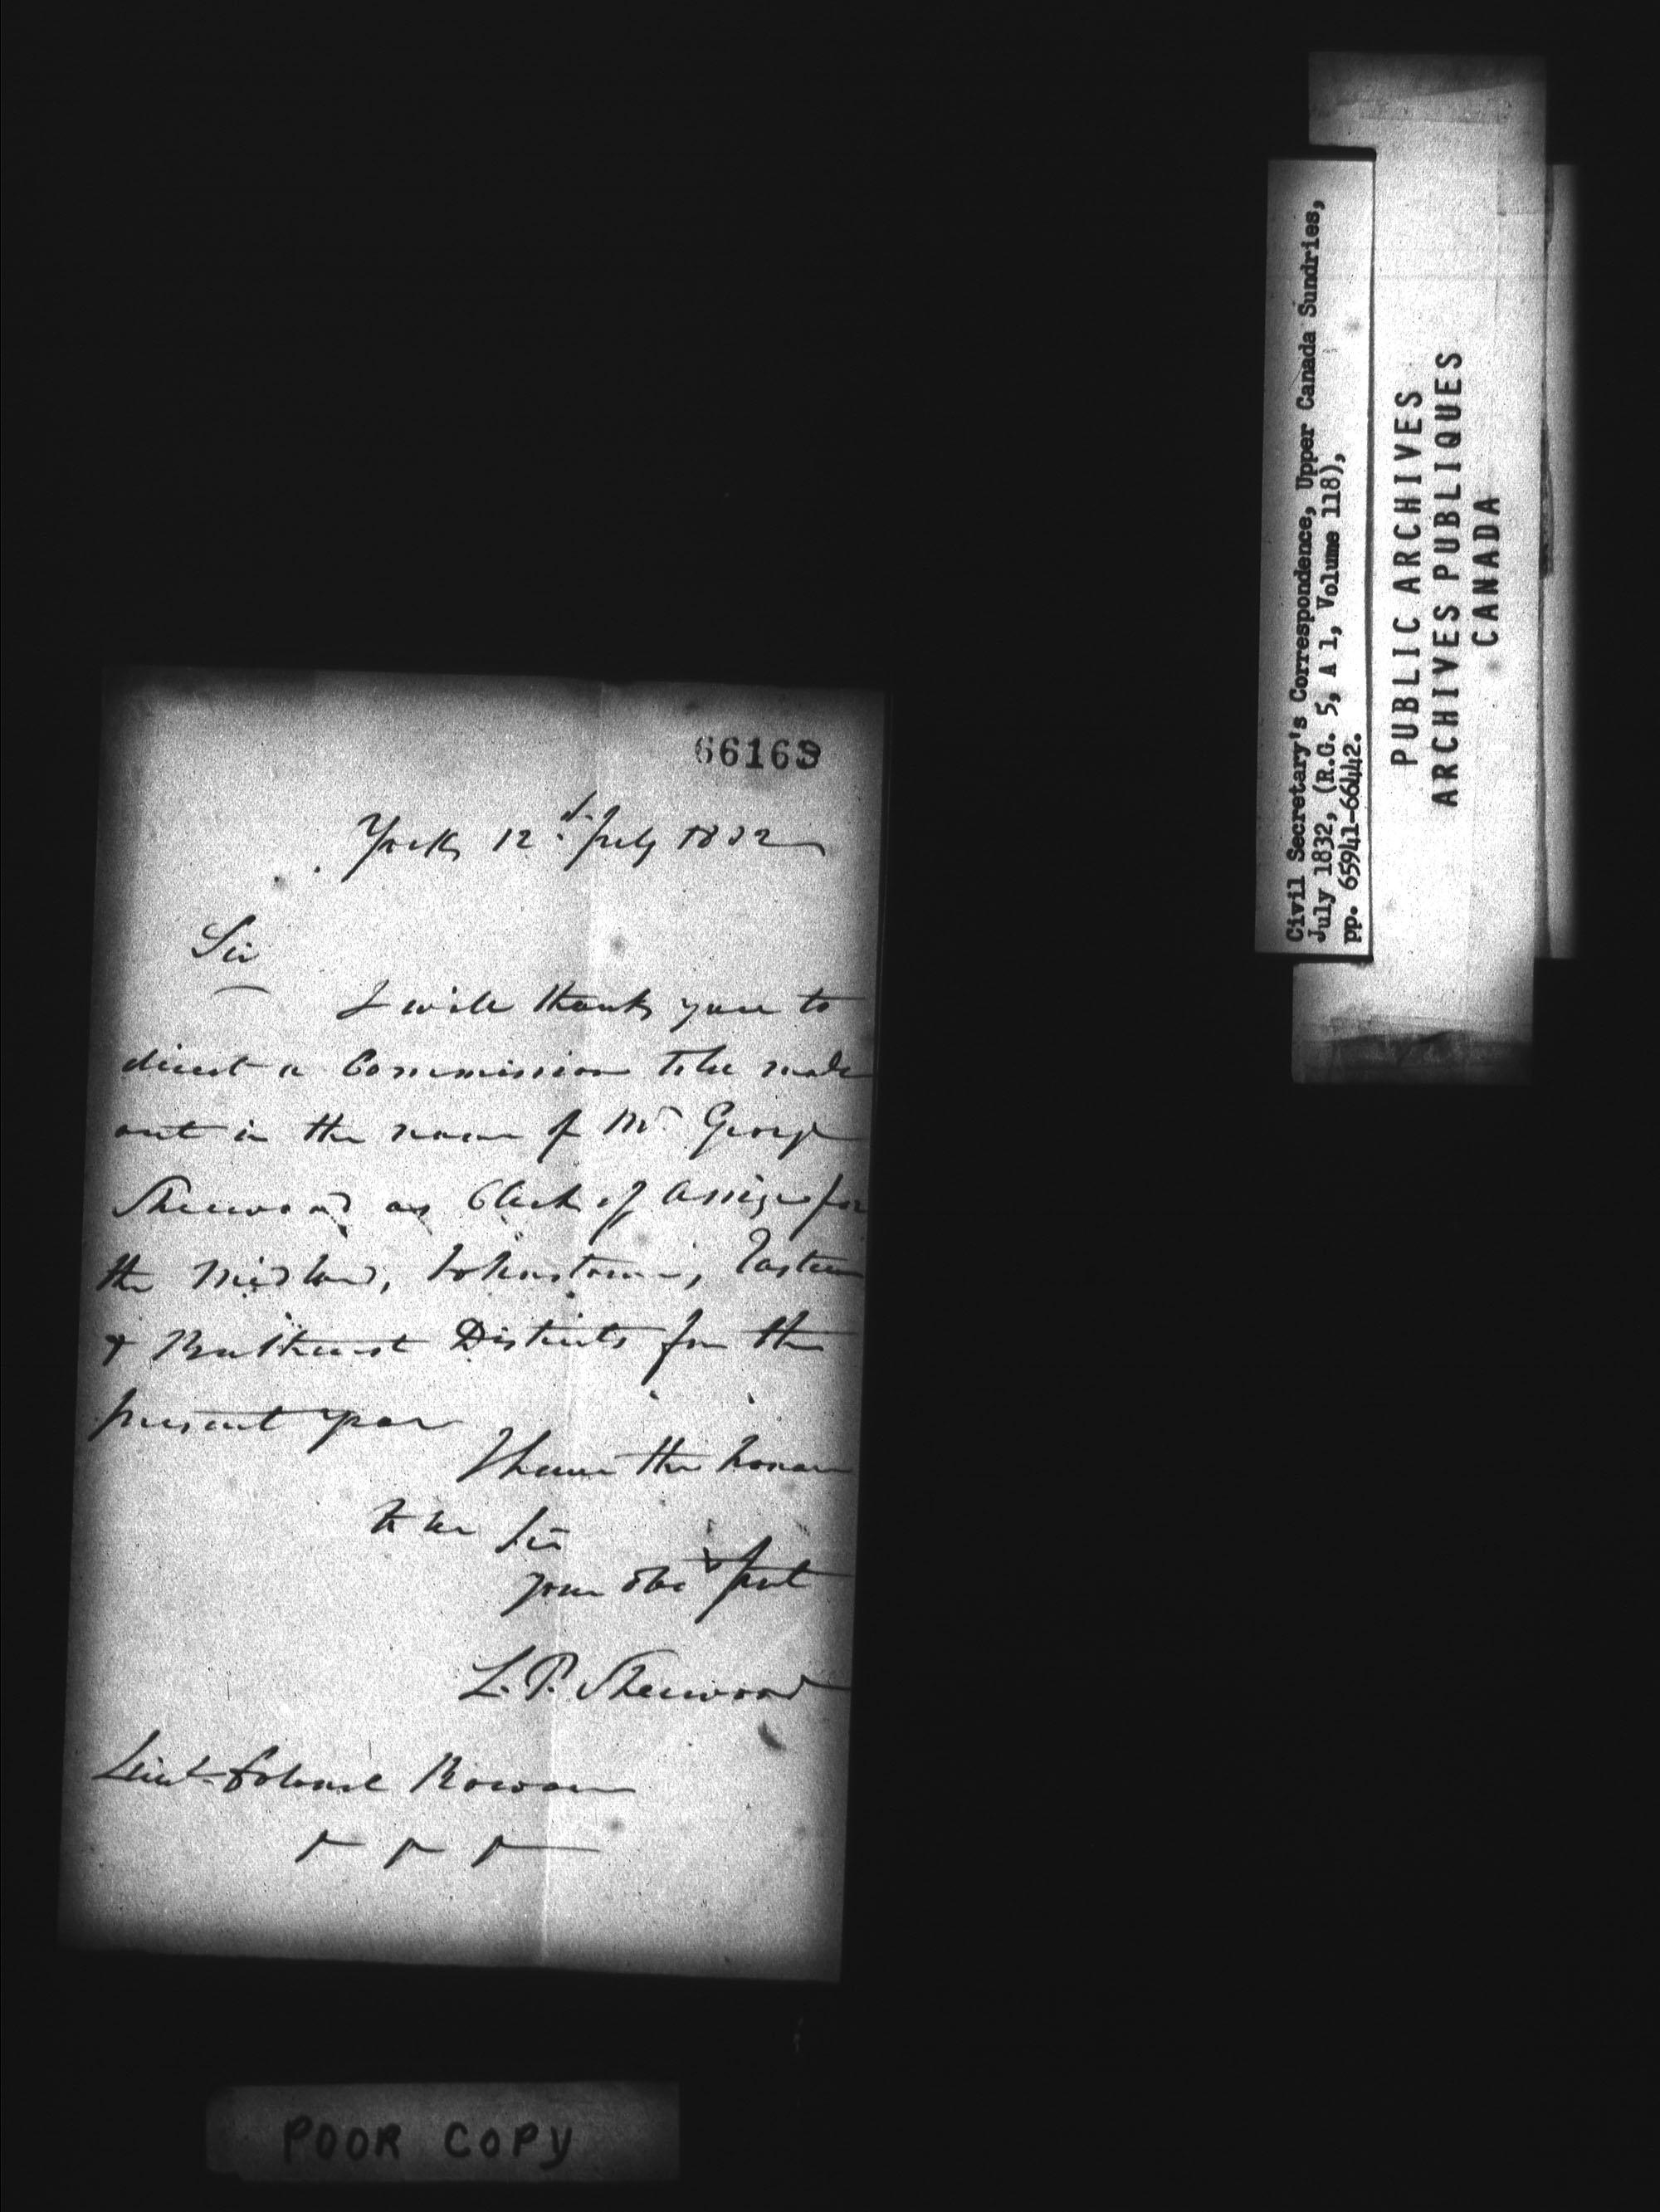 66169
York 12th July 1832
Sir
I will thank you to
direct a Commission to be made
out in the name of Mr George
Sherwood as Clerk of Assize for
the Midland, Johnstown, Eastern
& Bathurst Districts for the
present year
I have the honour
to be Sir
your Obt Servt
L. P. Sherwood
Lieut Colonel Rowan
POOR COPY
Civil Secretary's Correspondence, Upper Canada Sundries,
July 1832, (R.G. 5, A 1, Volume 118),
pp. 65941-66442.
PUBLIC ARCHIVES
ARCHIVES PUBLIQUES
CANADA